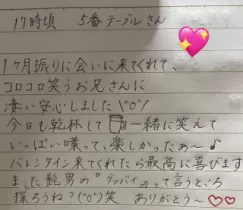 17時頃 5番テーブルさん
1ヶ月振りに会いに来てくれて、
コロコロ笑うお兄さんに
凄い安心しました\(^o^)/
今日も乾杯して一緒に笑えて
いっぱい喋って、楽しかったぁ〜♪
バレンタイン来てくれたら最高に喜びます
また髭男の"グッバイ"って言うところ
採ろうね?(^o^)笑 ありがとう〜♡♡